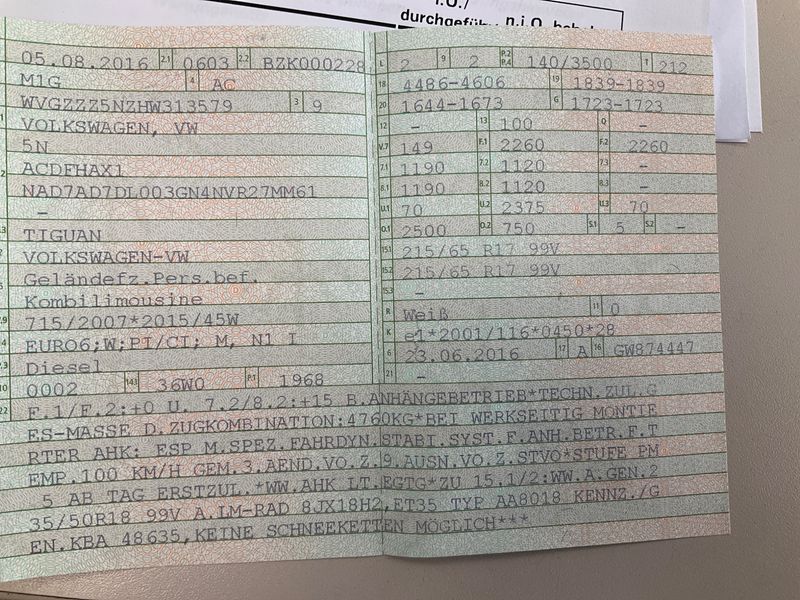 i.O./
durchgeführ n.i.O. beh
05.08.2016 2.1 0603 2.2 BZK000228
M1G 4 AC
WVGZZZ5NZHW313579 3 9
VOLKSWAGEN, VW
5N
ACDFHAX1
NAD7AD7DL003GN4NVR27MM61
–
TIGUAN
VOLKSWAGEN-VW
Geländefz.Pers.bef.
Kombilimousine
715/2007*2015/45W
EURO6;W;PI/CI; M, N1 I
Diesel
0002 14.3 36W0 P.1 1968
L 2 9 2 P.2 P.4 140/3500 T 212
18 4486-4606 19 1839-1839
20 1644-1673 G 1723-1723
12 – 13 100 Q –
V.7 149 F.1 2260 F.2 2260
7.1 1190 7.2 1120 7.3 –
8.1 1190 8.2 1120 8.3 –
U.1 70 U.2 2375 U.3 70
O.1 2500 O.2 750 S.1 5 S.2 –
15.1 215/65 R17 99V
15.2 215/65 R17 99V
15.3 –
R Weiß 11 0
K e1*2001/116*0450*28
6 23.06.2016 17 A 16 GW874447
21 –
22 F.1/F.2:+0 U. 7.2/8.2:+15 B.ANHÄNGEBETRIEB*TECHN.ZUL.G
ES-MASSE D.ZUGKOMBINATION:4760KG*BEI WERKSEITIG MONTIE
RTER AHK: ESP M.SPEZ.FAHRDYN.STABI.SYST.F.ANH.BETR.F.T
EMP.100 KM/H GEM.3.AEND.VO.Z.9.AUSN.VO.Z.STVO*STUFE PM
5 AB TAG ERSTZUL.*WW.AHK LT.EGTG*ZU 15.1/2:WW.A.GEN.2
35/50R18 99V A.LM-RAD 8JX18H2,ET35 TYP AA8018 KENNZ./G
EN.KBA 48635,KEINE SCHNEEKETTEN MÖGLICH***